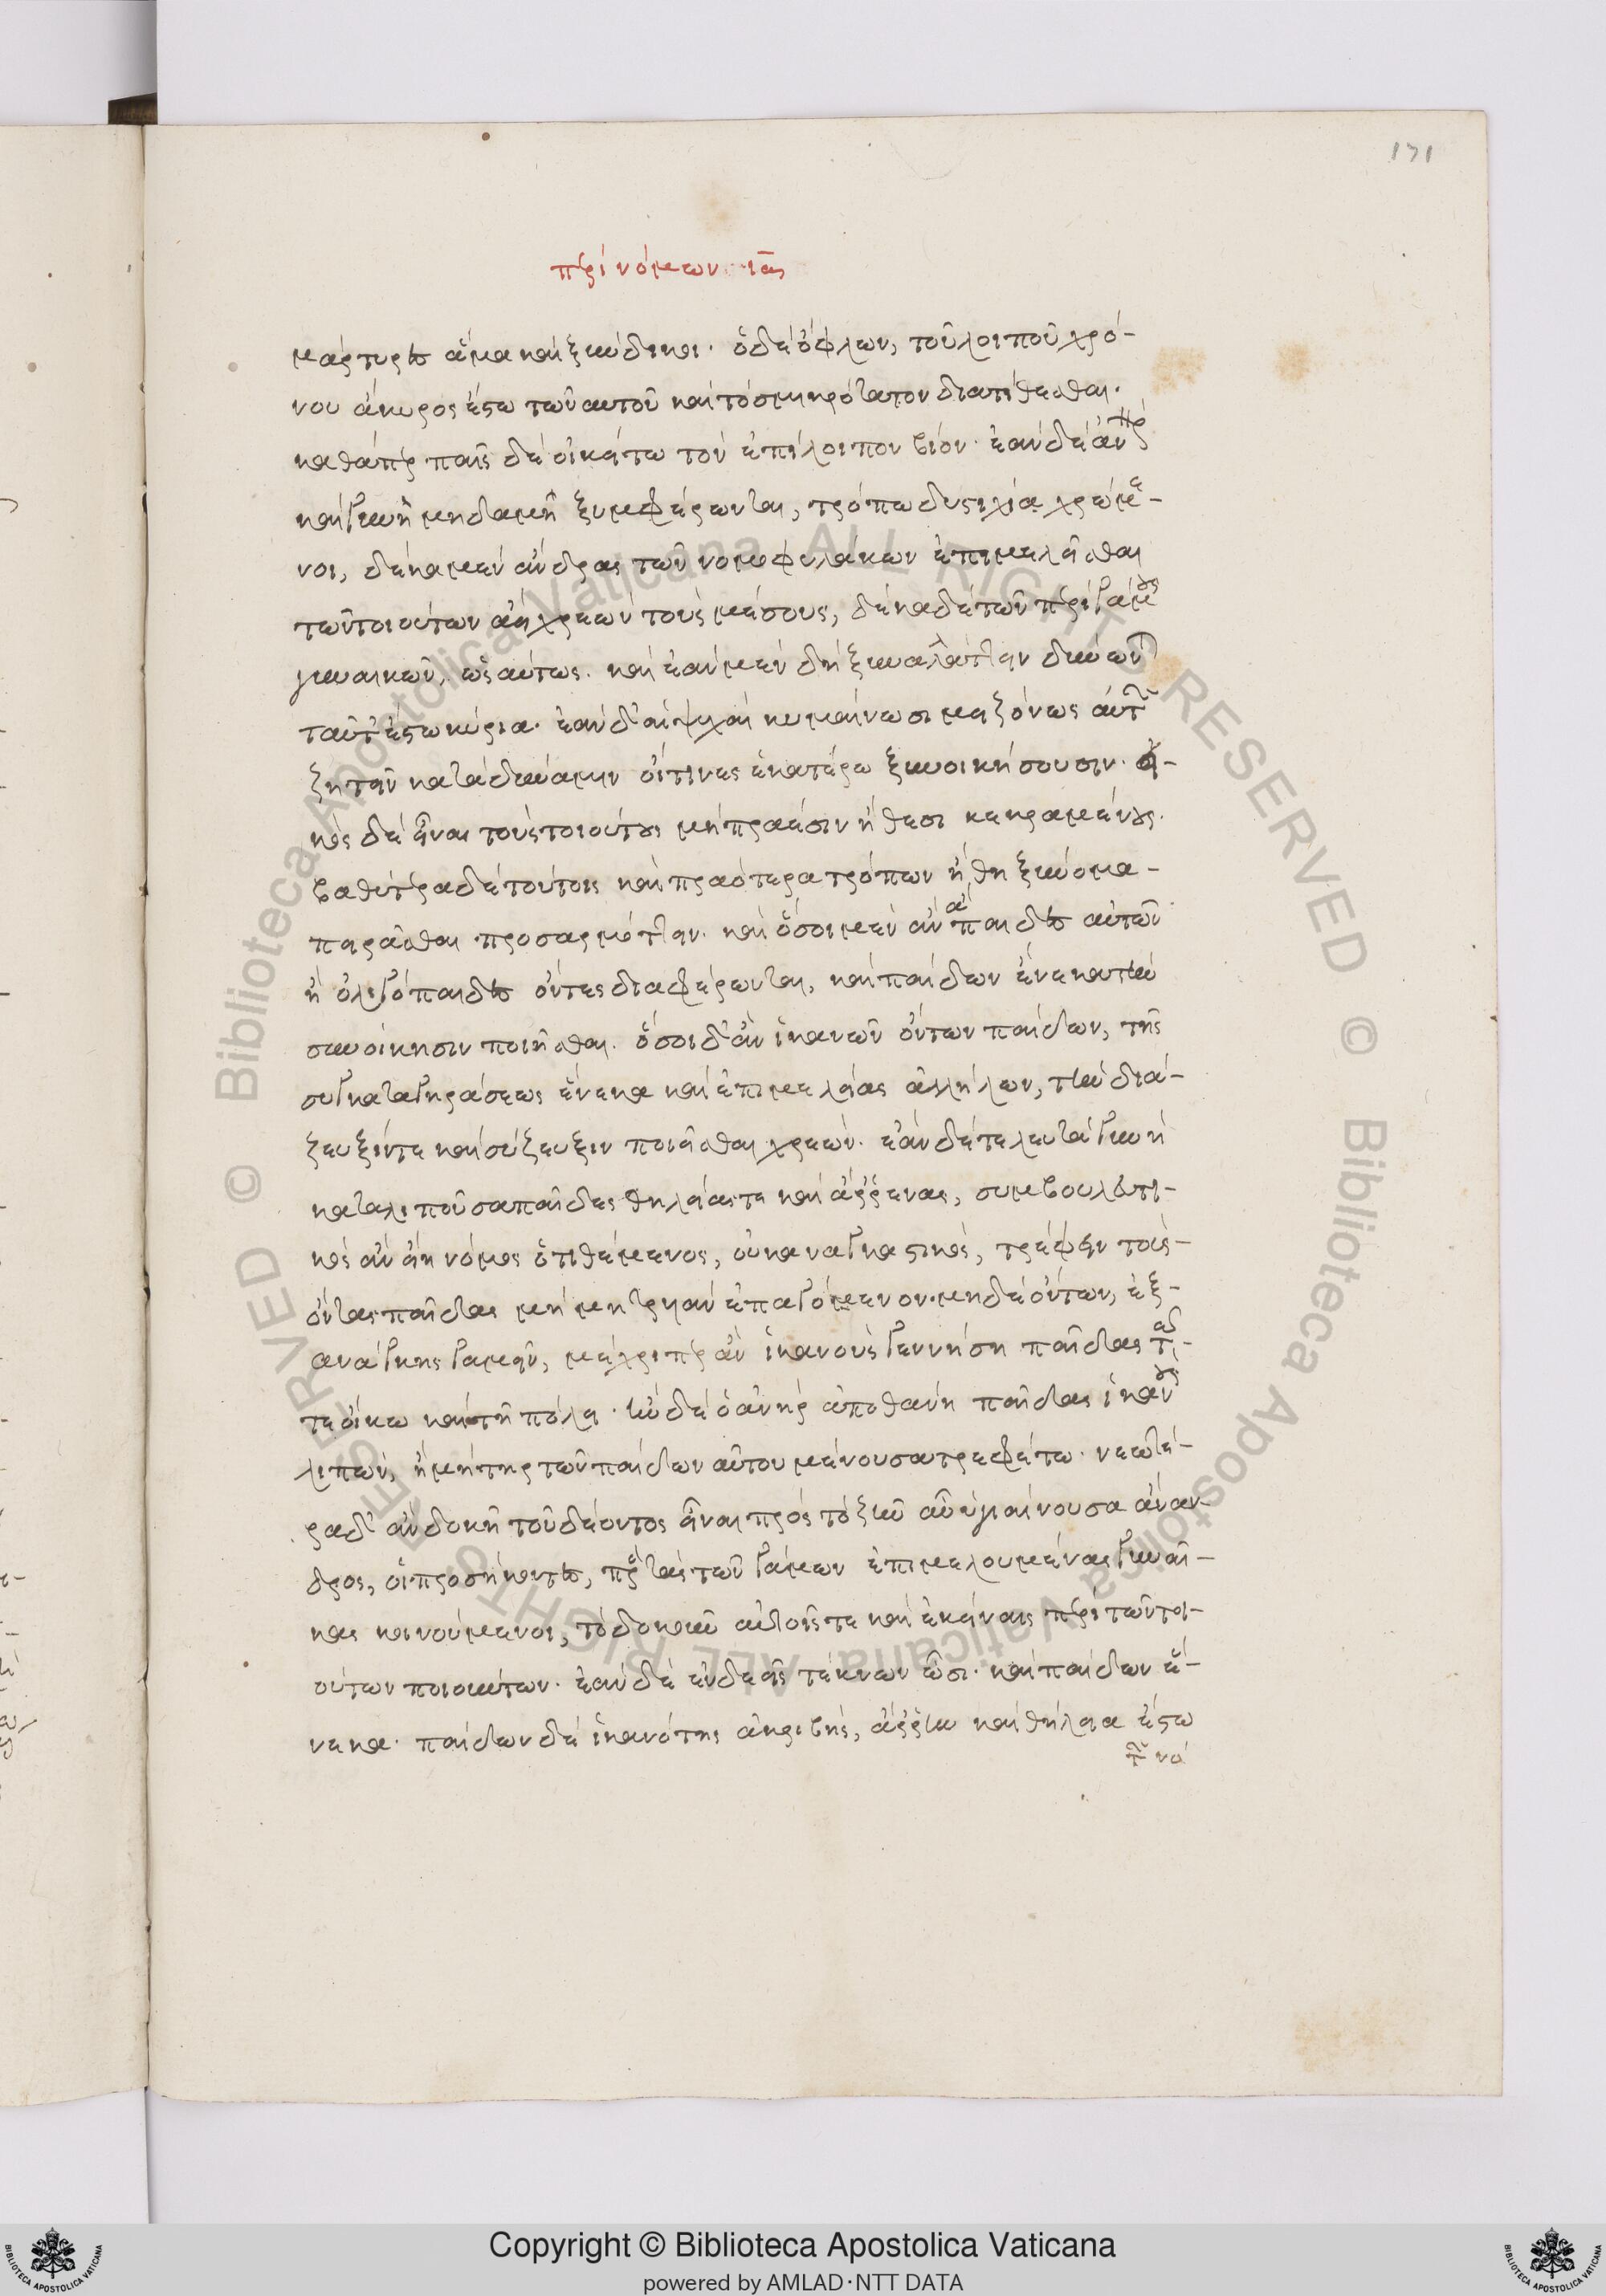 171
περὶ νόμων ια
μάρτυρες ἅμα καὶ ξύνδικοι· ὁ δὲ ὀφλων, τοῦ λοιποῦ χρό-
νου ἄκυρος ἔστω τῶν αυτοῦ καὶ τὸ σμικρότατον διατίθεσθαι·
καθάπερ παῖς δὲ οἰκείτω τὸν ἐπίλοιπον βίον· ἐὰν δὲ ἀνὴρ
καὶ γυνὴ μηδαμῆ ξυμφέρωνται, τρόπω δυστυχία χρώμε-
νοι, δέκα μὲν ἄνδρας τῶν νομοφυλάκων ἐπιμελεῖσθαι
τῶν τοιούτων ἀεὶ χρεὼν τοὺς μέσους, δέκα δὲ τῶν περὶ γάμους
γυναικῶν, ὡσαύτως. καὶ ἐὰν μὲν δὴ ξυναλλάττειν δύνωνται
ταῦτ' ἔστω κύρια· ἐὰν δ' αἱ ψυχαὶ κυμαίνωσι μειζόνως αὐτῶν
ζητεῖν κατὰ δύναμιν οἵτινες ἑκατέρω ξυνοικήσουσιν· εἰ-
κὸς δὲ εἶναι τοὺς τοιούτους μὴ πραέσιν ἤθεσι κεκραμένους·
βαθύτερα δὲ τούτοις καὶ πραότερα τρόπων ἤθη ξύννομα-
πειρᾶσθαι προσαρμόττειν· καὶ ὅσοι μὲν ἂν ἄπαιδες αὐτῶν
ἢ ὀλιγόπαιδες ὄντες διαφέρωνται, καὶ παίδων ἕνεκα τὴν
συνοίκησιν ποιεῖσθαι. ὅσοι δ' ἂν ἱκανῶν ὄντων παίδων, τῆς
συγκαταγηράσεως ἕνεκα καὶ ἐπιμελείας ἀλλήλων, τὴν διά-
ζευξίν τε καὶ σύζευξιν ποιεῖσθαι χρεών· ἐὰν δὲ τελευτᾶ γυνὴ
καταλιποῦσα παῖδας θηλείας τε καὶ ἄρρενας, συμβουλευτι-
κὸς ἂν εἴη νόμος ὁ τιθέμενος, οὐκ ἀναγκαστικὸς, τρέφειν τοὺς-
ὄντας παῖδας μὴ μητρυιὰν ἐπαγόμενον· μηδὲ ὄντων, ἐξ-
ανάγκης γαμεῖν, μέχριπερ ἂν ἱκανοὺς γεννήση παῖδας τῶ-
τε οἴκω καὶ τῆ πόλει· ἢν δὲ ὁ ἀνὴρ ἀποθάνη παῖδας ἱκανοὺς
λιπὼν, ἡ μήτηρ τῶν παίδων αὐτοῦ μένουσα τρεφέτω· νεωτέ-
ρα δ' ἂν δοκῆ τοῦ δέοντος εἶναι πρὸς τὸ ζῆν ἂν ὑγιαίνουσα ἄναν-
δρος, οἱ προσήκοντες, πρὸς τὰς τῶν γάμων ἐπιμελουμένας γυναῖ-
κας κοινούμενοι, τὸ δοκοῦν αὐτοῖς τε καὶ ἐκείναις περὶ τῶν τοι-
ούτων ποιούντων· ἐὰν δὲ ἐνδεεῖς τέκνων ὦσι· καὶ παίδων ἕ-
νεκα· παίδων δὲ ἱκανότης ἀκριβὴς, ἄρρην καὶ θήλεια ἔστω
τῶ νό
Copyright © Biblioteca Apostolica Vaticana
powered by AMLAD·NTT DATA